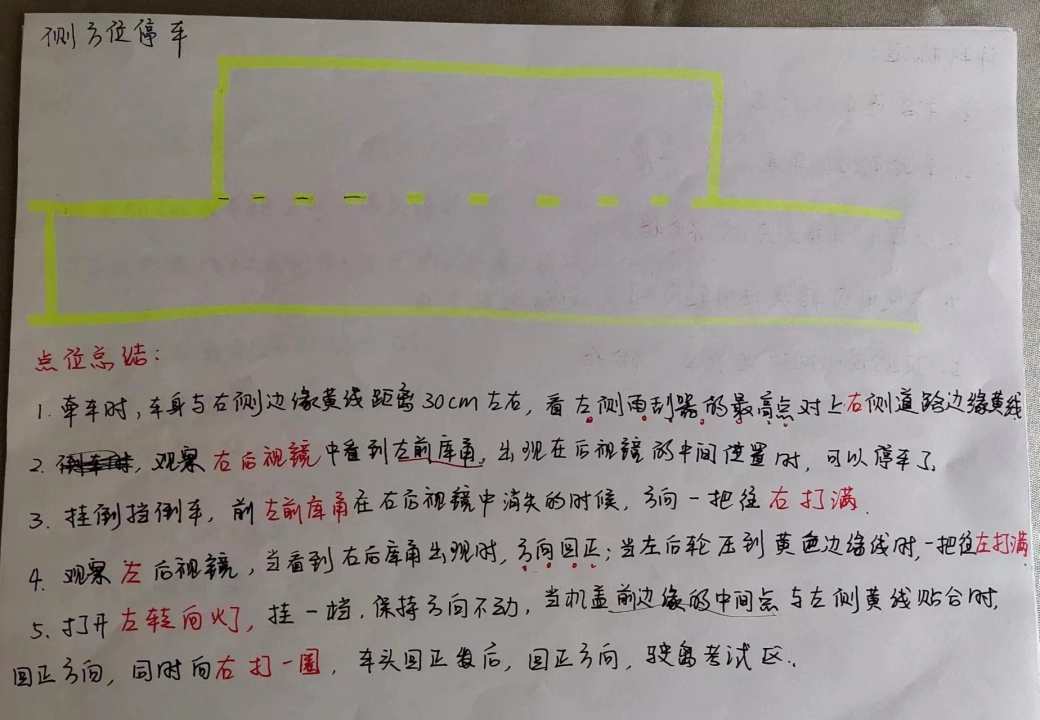 侧方位停车
点位总结:
1. 牵车时,车身与右侧边缘黄线距离30cm左右,看左侧雨刮器的最高点对上右侧道路边缘黄线
2. 观察右后视镜中看到左前库角,出现在后视镜的中间位置时,可以停车了
3. 挂倒挡倒车,前左前库角在右后视镜中消失的时候,方向一把往右打满.
4. 观察左后视镜,当看到右后库角出现时,方向回正;当左后轮压到黄色边缘线时,一把往左打满
5. 打开左转向灯,挂一档,保持方向不动,当机盖前边缘的中间点与左侧黄线贴合时,
回正方向,同时向右打一圈,车头回正数后,回正方向,驶离考试区.